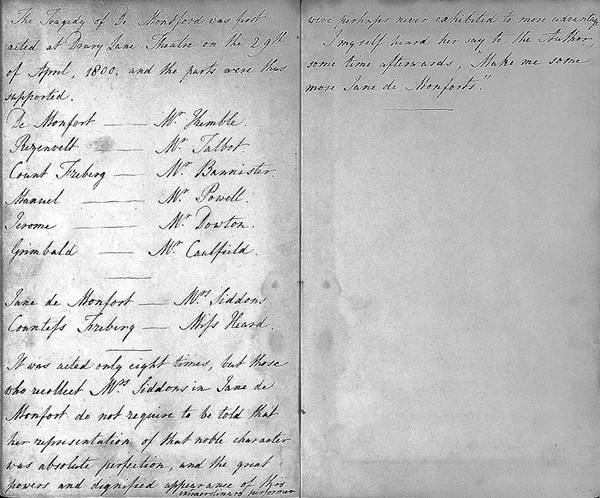 The Tragedy of De Mondford was first
acted at Drury Lane Theatre on the 29th
of April, 1800, and the parts were thus
supported.
De Monfort — Mr Kemble.
Rezenvelt — Mr Talbot.
Count Freberg — Mr Bannister.
Manuel — Mr Powell.
Jerome — Mr Dowton.
Grimbald — Mr Caulfield.
Jane de Monfort — Mrs Siddons
Countess Freberg — Miss Heard.
It was acted only eight times, but those
who recollect Mrs Siddons in Jane de
Monfort do not require to be told that
her representation of that noble character
was absolute perfection, and the great
powers and dignified appearance of this
extraordinary performer
were perhaps never exhibited to more advantage
I myself heard her say to the Author,
some time afterwards, Make me some
more Jane de Monforts".